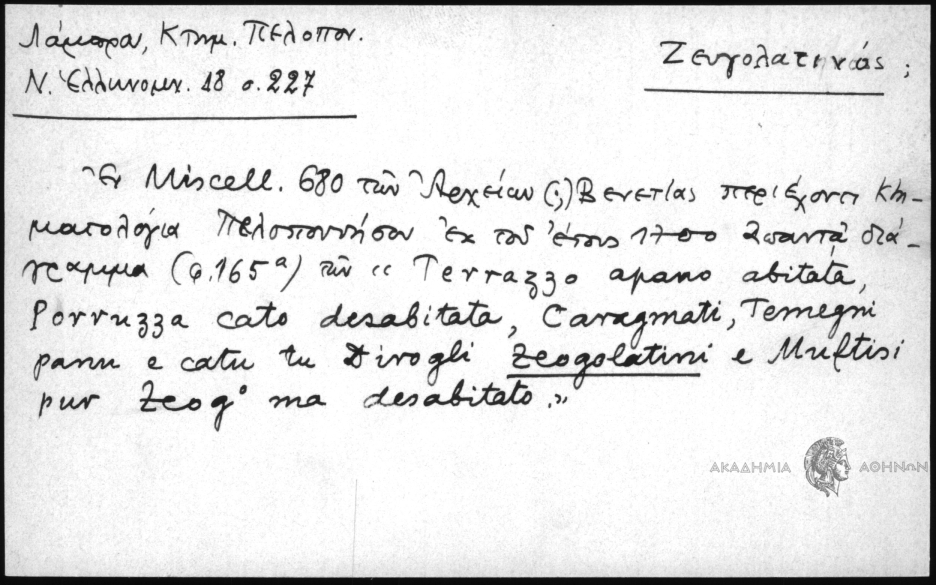 Λάμπρα, Κτημ. Πελοπον.
Ν. Ἑλληνομν. 18 σ. 227
Ζευγολατινάς ;
Ἐν Miscell. 680 τῶν Ἀρχείων (;) Βενετίας περιέχοντι κτη-
ματολόγια Πελοποννήσου ἐκ τοῦ ἔτους 1700 ἀπαντᾷ διά-
γραμμα (φ. 165α) τῶν « Terrazzo apano abitata,
Porruzza cato desabitata, Caragmati, Temegni
panu e catu tu Dirogli Zeogolatini e Muftisi
pur Zeog° ma desabitato. »
ΑΚΑΔΗΜΙΑ ΑΘΗΝΩΝ